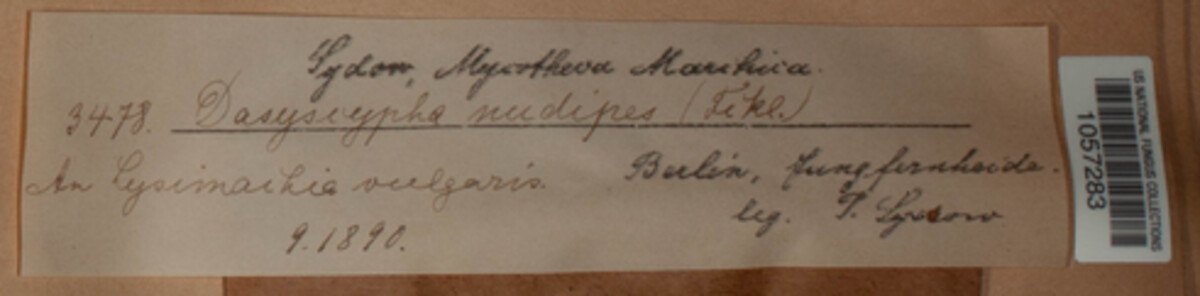 Sydow, Mycotheca Marchica.
3478. Dasyscypha nudipes (Fckl.)
An Lysimachia vulgaris.
Berlin, Jungfernheide.
9.1890.
leg. P. Sydow
US NATIONAL FUNGUS COLLECTIONS
1057283